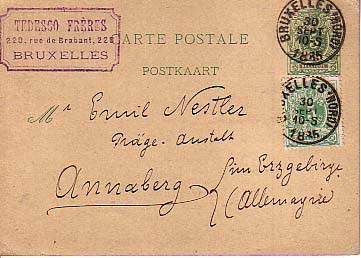 TEDESCO FRÈRES
220, rue de Brabant, 226
BRUXELLES
CARTE POSTALE
POSTKAART
BRUXELLES (NORD)
30
SEPT
10-S
1885
BRUXELLES (NORD)
30
10-S
1885
Mr Emil Nestler
Präge-Anstalt
Annaberg
im Erzgebirge
(Allemagne)